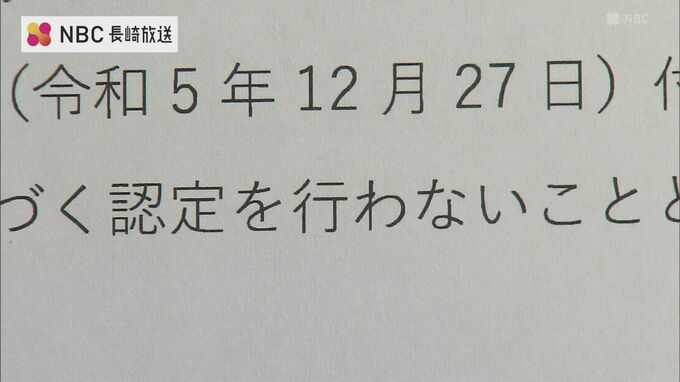 NBC 長崎放送
NBC
（令和5年12月27日）付
づく認定を行わないことと